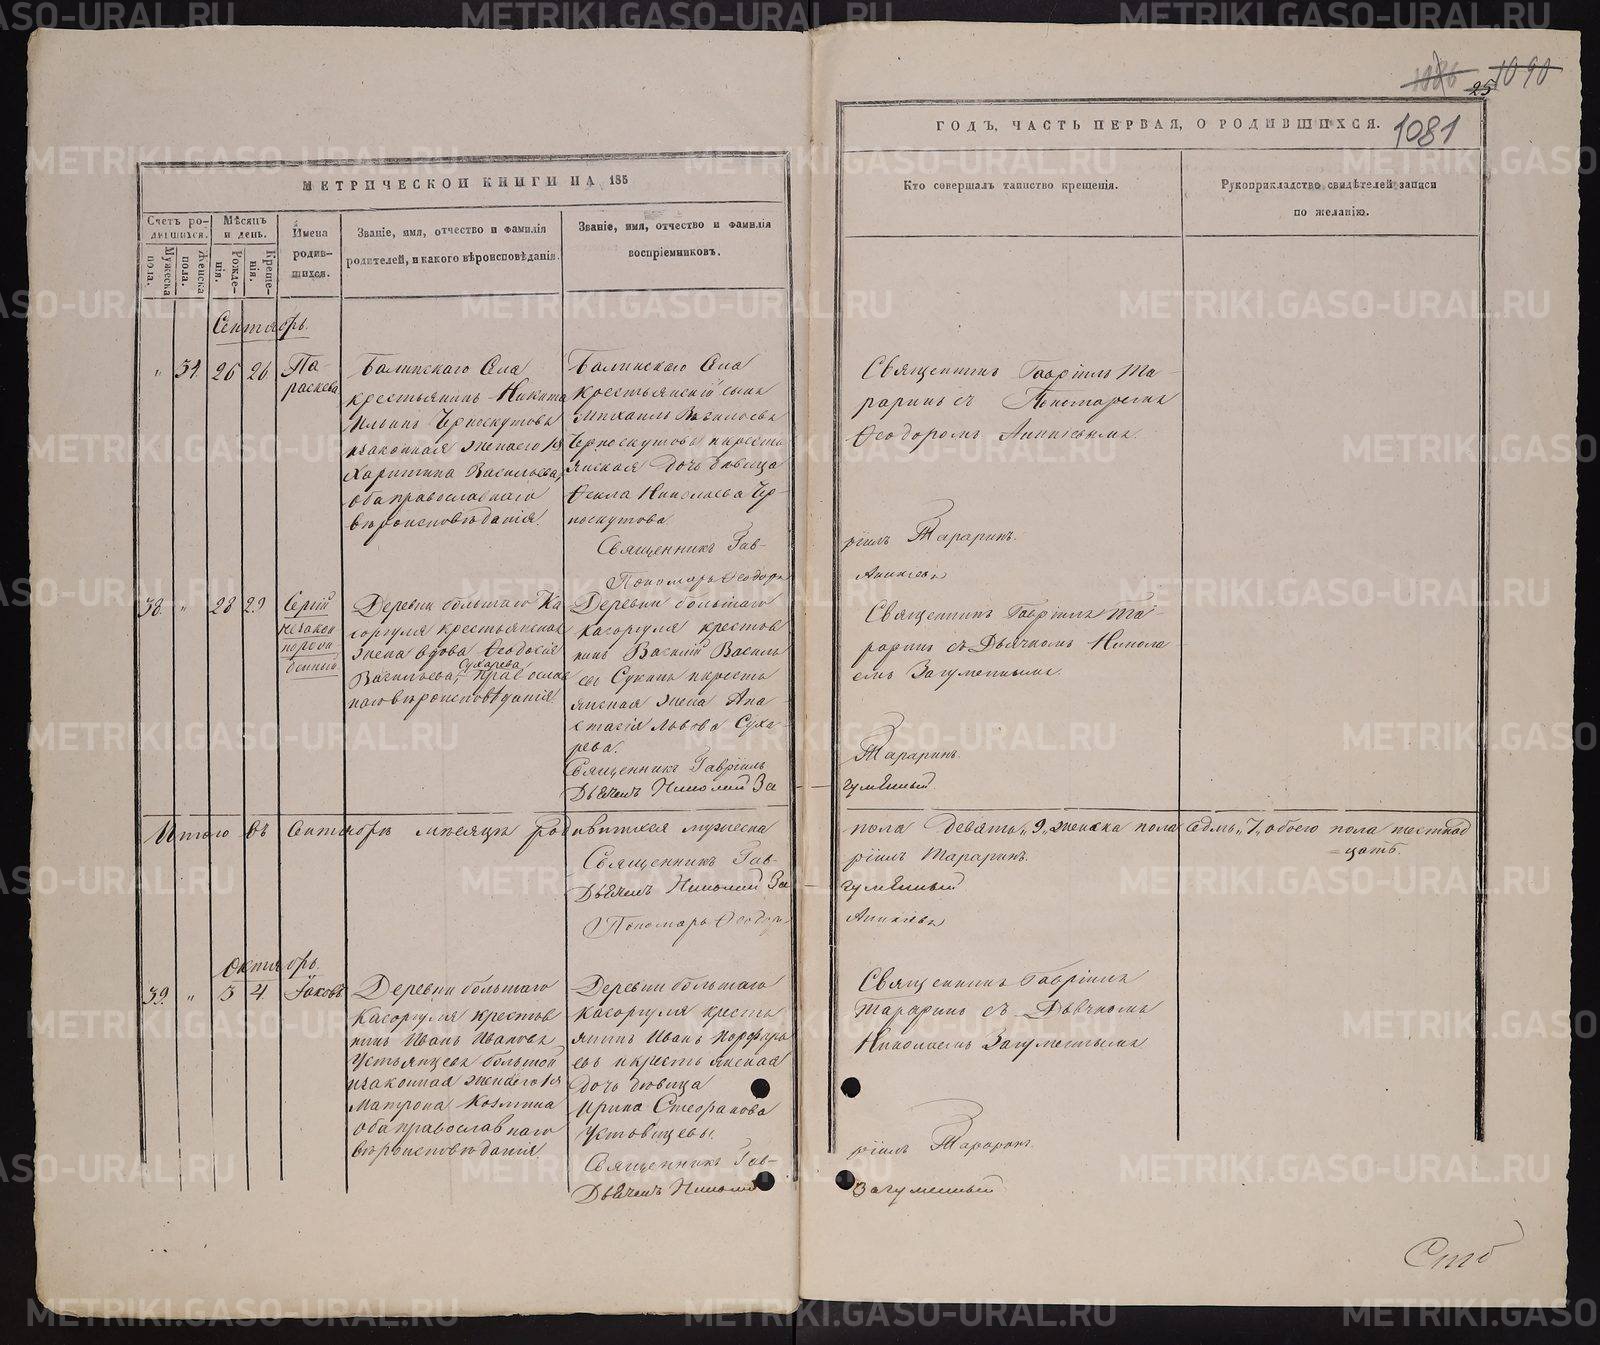 1086 1090
25
1081
МЕТРИЧЕСКОЙ КНИГИ НА 185
ГОДЪ, ЧАСТЬ ПЕРВАЯ, О РОДИВШИХСЯ.
Счетъ ро-
дившихся.
Мужеска
пола.
Женска
пола.
Мѣсяцъ
и день.
Рожде-
нія.
Креще-
нія.
Имена
родив-
шихся.
Званіе, имя, отчество и фамилія
родителей, и какого вѣроисповѣданія.
Званіе, имя, отчество и фамилія
воспріемниковъ.
Кто совершалъ таинство крещенія.
Рукоприкладство свидѣтелей записи
по желанію.
Сентябрь.
" 31. 26 26
Па-
раскева
крестьянинъ Никита
Ильинъ Черноскутовъ
изаконная жена его 1я
Харитина Васильева,
оба православнаго
вѣроисповѣданія.
крестьянскій сынъ
Михаилъ
Черноскутовъ и кресть
янская дочь дѣвица
Ѳекла Николаева Чер-
носкутова.
Священникъ Гавріилъ Та-
раринъ съ Пономаремъ
Ѳеодоромъ
Священникъ Гав-
ріилъ Тараринъ.
Пономарь Ѳеодоръ
38. " 28 29
Сергій
незакон
норож
денный
Деревни большаго Ка
соргуля крестьянская
жена вдова Ѳеодосія
Васильева, Сухарева православ
наго вѣроисповѣданія.
Деревни большаго
касоргуля крестья
нинъ Василій Василь
евъ Сухихъ и кресть
янская жена Ана
стасія Львова Суха-
рева.
Священникъ Гавріилъ Та-
раринъ съ Дьячкомъ Никола
емъ Загуменнымъ.
Священникъ Гавріилъ
Тараринъ.
Дьячекъ Николай За
гуменный
Итого въ Сентябрѣ мѣсяцѣ родившихся мужеска
пола девять „9„ женска пола седмь „7„ обоего пола шестнад
цать.
Священникъ Гав-
ріилъ Тараринъ.
Дьячекъ Николай За
гуменный
Пономарь Ѳеодоръ
Октябрь.
39. " 3 4
Іаковъ
Деревни большаго
касоргуля крестья
нинъ Иванъ Ивановъ
Устьянцевъ большой
изаконная жена его 1я
Матрона Козмина
оба православнаго
вѣроисповѣданія.
Деревни большаго
касоргуля кресть
янинъ Иванъ Порфирь
евъ и крестьянская
дочь дѣвица
Ирина Стефанова
Священникъ Гавріилъ
Тараринъ съ Дьячкомъ
Николаемъ Загуменнымъ
Священникъ Гав-
ріилъ Тараринъ.
Дьячекъ Николай
Загуменный
METRIKI.GASO-URAL.RU